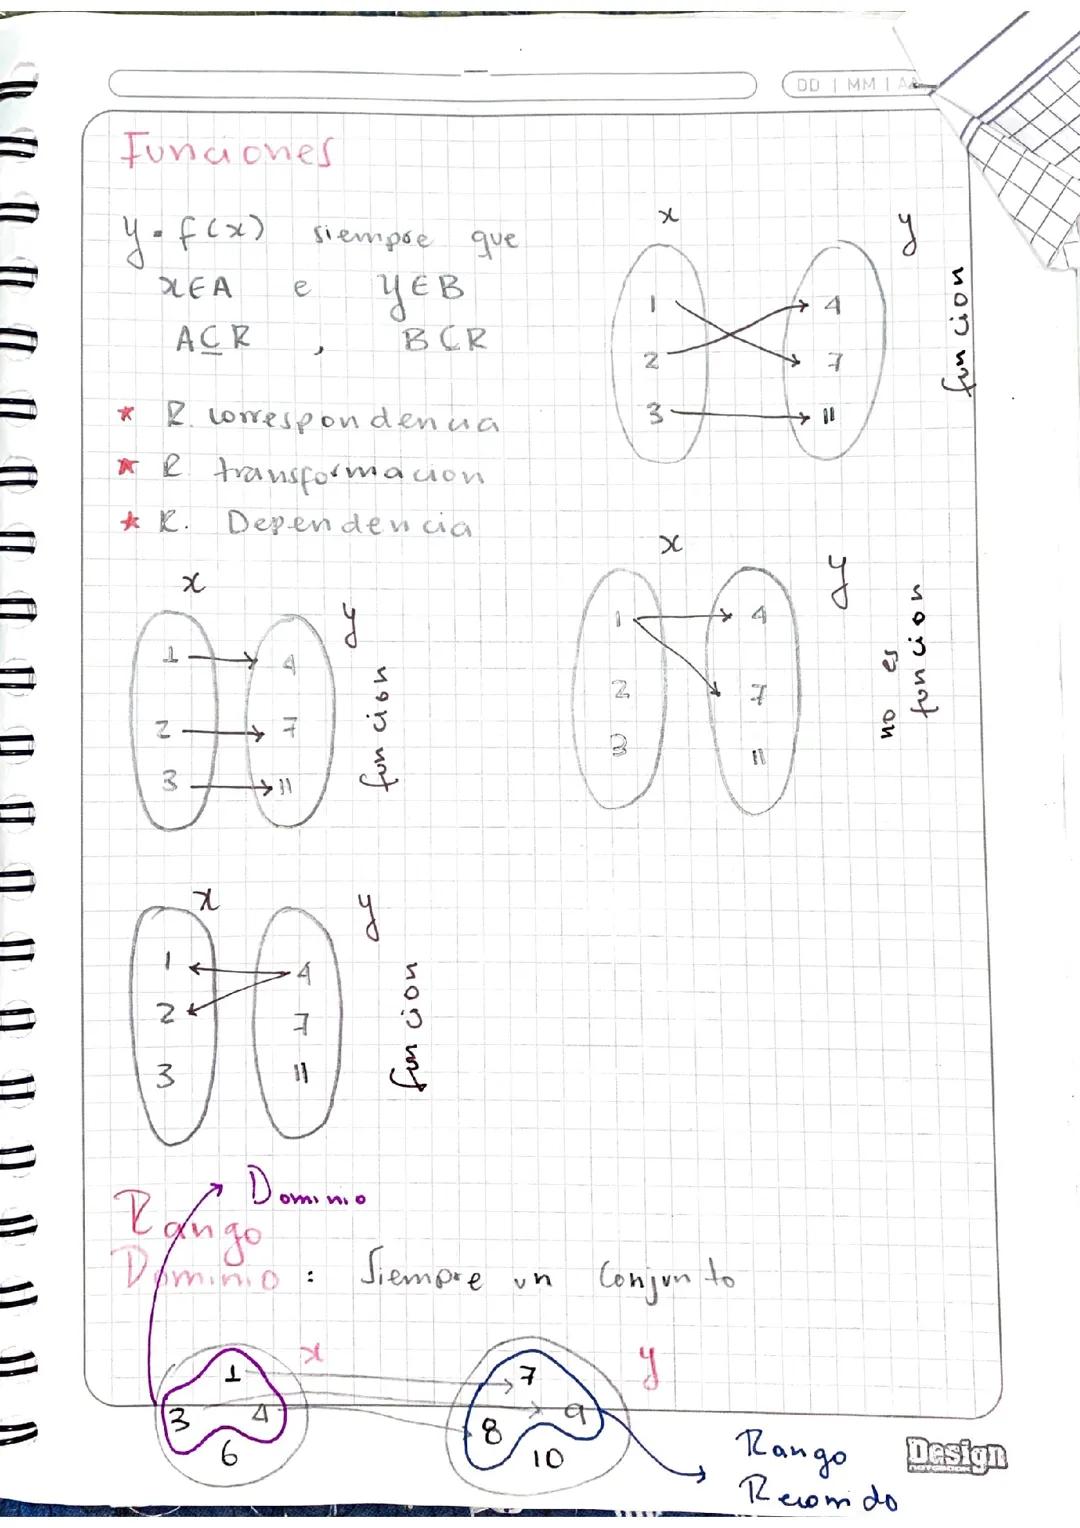 DD | MM | AA
Funciones
y = f(x) siempre que
x∈A e y∈B
A⊆R , B⊂R
* R. correspondencia
* R transformacion
* R. Dependencia
x y
1 4
2 7
3 11
funcion
x y
1 4
2 7
3 11
funcion
x y
1 4
2 7
3 11
no es
funcion
x y
1 4
2 7
3 11
funcion
Dominio
Rango
Dominio : Siempre un Conjunto
x y
1 7
3 4 8 9
6 10
Rango
Recorrido
Design